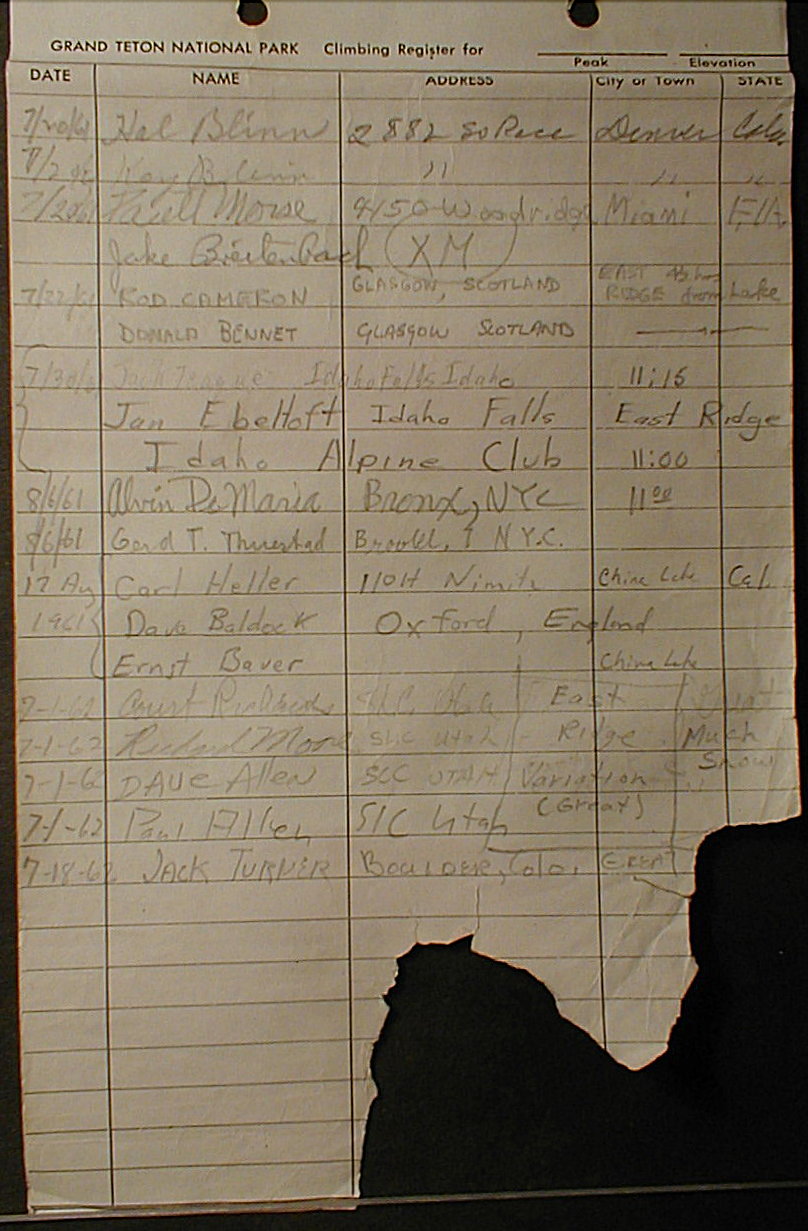 GRAND TETON NATIONAL PARK Climbing Register for
Peak Elevation
DATE NAME ADDRESS City or Town STATE
7/20/61 Hal Blinn 2882 So Race Denver Colo.
7/20/61 Kay Blinn " " "
7/20/61 Morse 4150 Woodridge Miami FLA.
Jake Breitenbach (XM)
7/22/61 ROD CAMERON GLASGOW, SCOTLAND EAST RIDGE from Lake
DONALD BENNET GLASGOW SCOTLAND
7/30/61 Jack Teague Idaho Falls Idaho 11:15
Jan Ebeltoft Idaho Falls East Ridge
Idaho Alpine Club 11:00
8/6/61 Alvin DeMaria Bronx, NYC 11 00
8/6/61 T. N.Y.C.
17 Aug Carl Heller 110H Nimitz China Lake Cal.
1961 Dave Baldock Oxford, England
Ernst Bauer China Lake
7-1-62 Court Richards SLC Utah East Great
7-1-62 Richard SLC Utah Ridge Much
7-1-62 DAVE Allen SLC UTAH Variation Snow
7-1-62 Paul Allen SLC Utah (Great)
7-18-62 JACK TURNER BOULDER, Colo. GREAT